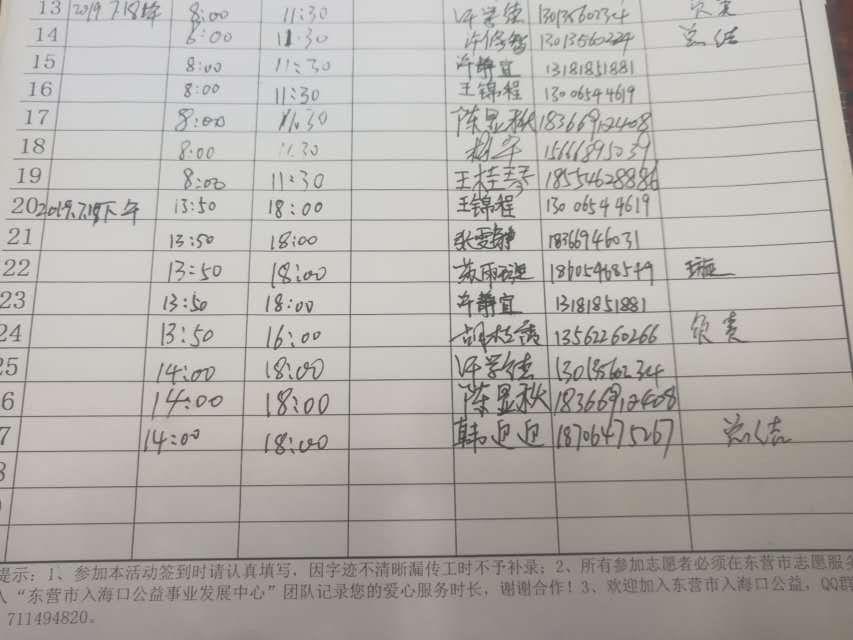 13 2019.7.18 8:00 11:30 许学德 13013560234 负责
14 8:00 11:30 许修智 13013560224 总结
15 8:00 11:30 许静宜 13181851881
16 8:00 11:30 王锦程 13006544619
17 8:00 11:30 陈显秋 18366912408
18 8:00 11:30 15666895039
19 8:00 11:30 王桂 18554628886
20 2019.7.18下午 13:50 18:00 王锦程 13006544619
21 13:50 18:00 张雯静 18366946031
22 13:50 18:00 苏雨 18605468549
23 13:50 18:00 许静宜 13181851881
24 13:50 16:00 胡桂 13562260266 负责
25 14:00 18:00 许学德 13013560234
6 14:00 18:00 陈显秋 18366912408
7 14:00 18:00 韩迎迎 18706475267 总结
8
提示：1、参加本活动签到时请认真填写，因字迹不清晰漏传工时不予补录；2、所有参加志愿者必须在东营市志愿服务
入“东营市入海口公益事业发展中心”团队记录您的爱心服务时长，谢谢合作！3、欢迎加入东营市入海口公益，QQ群
711494820。